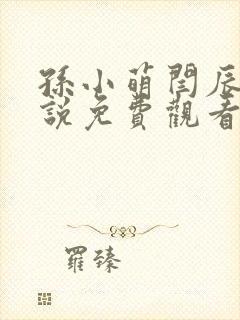 孫小萌閆辰
說免費觀看
羅臻